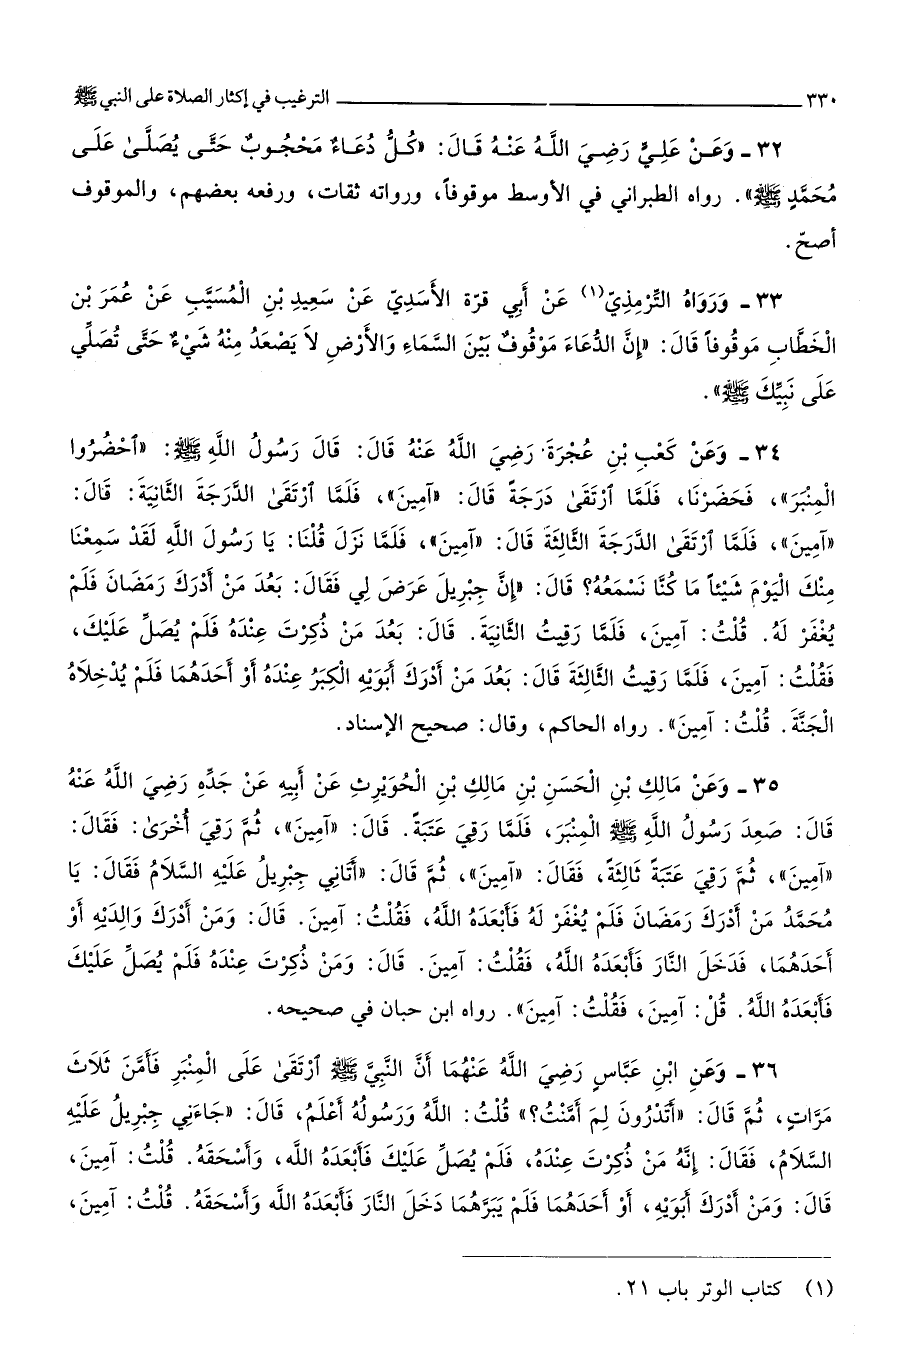 ٣٣٠ ــــــــــــ الترغيب في إكثار الصلاة على النبي ﷺ
٣٢ ـ وَعَنْ عَلِيٍّ رَضِيَ اللَّهُ عَنْهُ قَالَ: «كُلُّ دُعَاءٌ مَحْجُوبٌ حَتَّى يُصَلَّىٰ عَلَى
مُحَمَّدٍ ﷺ». رواه الطبراني في الأوسط موقوفاً، ورواته ثقات، ورفعه بعضهم، والموقوف
أصحّ.
٣٣ ـ وَرَوَاهُ التِّرْمِذِيّ(١) عَنْ أَبِي قرّة الأَسَدِيّ عَنْ سَعِيدِ بْنِ الْمُسَيَّبِ عَنْ عُمَرَ بْن
الْخَطَّابِ مَوْقُوفاً قَالَ: «إِنَّ الدُّعَاءَ مَوْقُوفٌ بَيْنَ السَّمَاءِ وَالأَرْضِ لاَ يَصْعَدُ مِنْهُ شَيْءٌ حَتَّى تُصَلِّي
عَلَى نَبِيِّكَ ﷺ».
٣٤ ـ وَعَنْ كَعْبِ بْنِ عُجْرَةَ رَضِيَ اللَّهُ عَنْهُ قَالَ: قَالَ رَسُولُ اللَّهِ ﷺ: «ٱحْضُرُوا
الْمِنْبَرَ»، فَحَضَرْنَا، فَلَمَّا ٱرْتَقَىٰ دَرَجَةً قَالَ: «آمِينَ»، فَلَمَّا ٱرْتَقَىٰ الدَّرَجَةَ الثَّانِيَةَ: قَالَ:
«آمِينَ»، فَلَمَّا ٱرْتَقَىٰ الدَّرَجَةَ الثَّالِثَةَ قَالَ: «آمِينَ»، فَلَمَّا نَزَلَ قُلْنَا: يَا رَسُولَ اللَّهِ لَقَدْ سَمِعْنَا
مِنْكَ الْيَوْمَ شَيْئاً مَا كُنَّا نَسْمَعُهُ؟ قَالَ: «إِنَّ جِبْرِيلَ عَرَضَ لِي فَقَالَ: بَعُدَ مَنْ أَدْرَكَ رَمَضَانَ فَلَمْ
يُغْفَرْ لَهُ. قُلْتُ: آمِينَ، فَلَمَّا رَقِيتُ الثَّانِيَةَ. قَالَ: بَعُدَ مَنْ ذُكِرْتَ عِنْدَهُ فَلَمْ يُصَلِّ عَلَيْكَ،
فَقُلْتُ: آمِينَ، فَلَمَّا رَقِيتُ الثَّالِثَةَ قَالَ: بَعُدَ مَنْ أَدْرَكَ أَبَوَيْهِ الْكِبَرُ عِنْدَهُ أَوْ أَحَدَهُمَا فَلَمْ يُدْخِلاَهُ
الْجَنَّةَ. قُلْتُ: آمِينَ». رواه الحاكم، وقال: صحيح الإسناد.
٣٥ ـ وَعَنْ مَالِكِ بْنِ الْحَسَنِ بْنِ مَالِكِ بْنِ الْحُوَيْرِثِ عَنْ أَبِيهِ عَنْ جَدِّهِ رَضِيَ اللَّهُ عَنْهُ
قَالَ: صَعِدَ رَسُولُ اللَّهِ ﷺ الْمِنْبَرَ، فَلَمَّا رَقِيَ عَتَبَةً. قَالَ: «آمِينَ»، ثُمَّ رَقِيَ أُخْرَىٰ: فَقَالَ:
«آمِينَ»، ثُمَّ رَقِيَ عَتَبَةً ثَالِثَةً، فَقَالَ: «آمِينَ»، ثُمَّ قَالَ: «أَتَانِي جِبْرِيلُ عَلَيْهِ السَّلاَمُ فَقَالَ: يَا
مُحَمَّدُ مَنْ أَدْرَكَ رَمَضَانَ فَلَمْ يُغْفَرْ لَهُ فَأَبْعَدَهُ اللَّهُ، فَقُلْتُ: آمِينَ. قَالَ: وَمَنْ أَدْرَكَ وَالِدَيْهِ أَوْ
أَحَدَهُمَا، فَدَخَلَ النَّارَ فَأَبْعَدَهُ اللَّهُ، فَقُلْتُ: آمِينَ. قَالَ: وَمَنْ ذُكِرْتَ عِنْدَهُ فَلَمْ يُصَلِّ عَلَيْكَ
فَأَبْعَدَهُ اللَّهُ. قُلْ: آمِينَ، فَقُلْتُ: آمِينَ». رواه ابن حبان في صحيحه.
٣٦ ـ وَعَنِ ابْنِ عَبَّاسٍ رَضِيَ اللَّهُ عَنْهُمَا أَنَّ النَّبِيَّ ﷺ ٱرْتَقَىٰ عَلَى الْمِنْبَرِ فَأَمَّنَ ثَلاَثَ
مَرَّاتٍ، ثُمَّ قَالَ: «أَتَدْرُونَ لِمَ أَمَّنْتُ؟» قُلْتُ: اللَّهُ وَرَسُولُهُ أَعْلَمُ، قَالَ: «جَاءَنِي جِبْرِيلُ عَلَيْهِ
السَّلاَمُ، فَقَالَ: إِنَّهُ مَنْ ذُكِرْتَ عِنْدَهُ، فَلَمْ يُصَلِّ عَلَيْكَ فَأَبْعَدَهُ الله، وَأَسْحَقَهُ. قُلْتُ: آمِينَ،
قَالَ: وَمَنْ أَدْرَكَ أَبَوَيْهِ، أَوْ أَحَدَهُمَا فَلَمْ يَبَرَّهُمَا دَخَلَ النَّارَ فَأَبْعَدَهُ الله وَأَسْحَقَهُ. قُلْتُ: آمِينَ،
(١) كتاب الوتر باب ٢١.